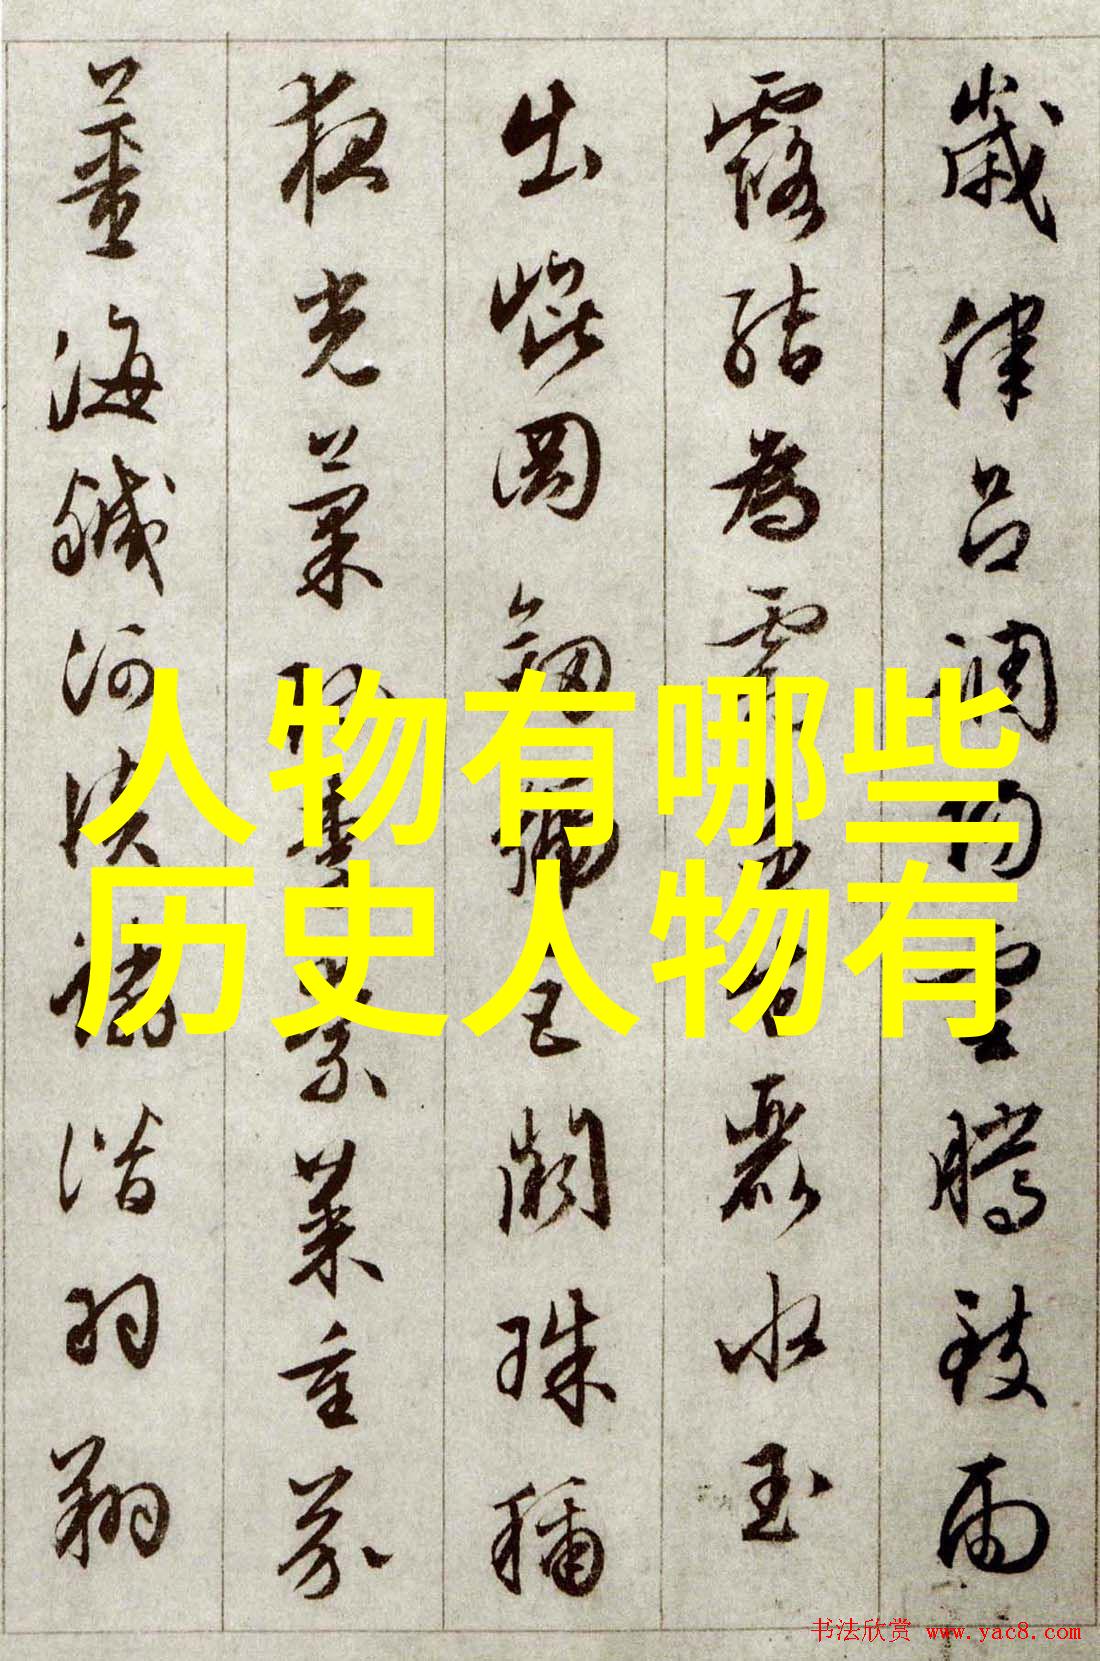 歲律呂調陽雲騰致雨
露結為霜金生麗水玉
出崐岡劒號巨闕珠稱
夜光菓珍李柰菜重芥
薑海鹹河淡鱗潛羽翔
人物有哪些
历史人物有
书法欣赏 www.yac8.com